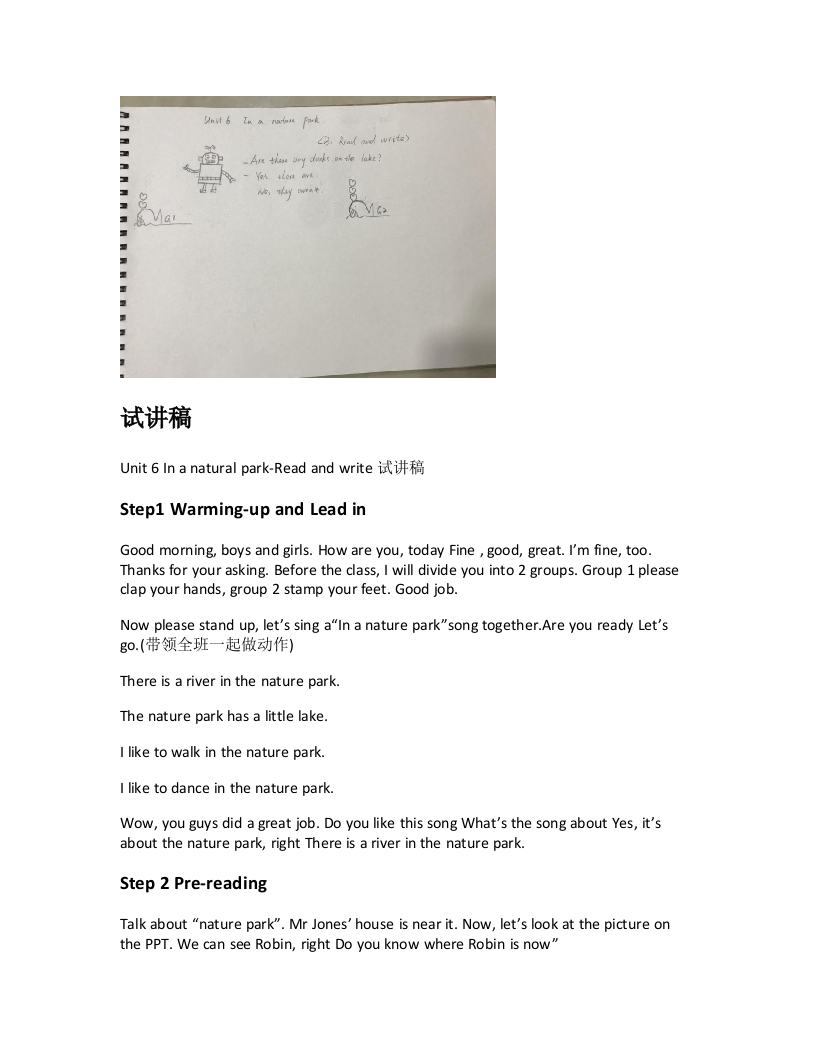 Unit 6 In a nature park
(B. Read and write)
- Are there any ducks on the lake?
- Yes, there are.
No, they aren't
G1
G2
试讲稿
Unit 6 In a natural park-Read and write 试讲稿
Step1 Warming-up and Lead in
Good morning, boys and girls. How are you, today Fine , good, great. I’m fine, too.
Thanks for your asking. Before the class, I will divide you into 2 groups. Group 1 please
clap your hands, group 2 stamp your feet. Good job.
Now please stand up, let’s sing a“In a nature park”song together.Are you ready Let’s
go.(带领全班一起做动作)
There is a river in the nature park.
The nature park has a little lake.
I like to walk in the nature park.
I like to dance in the nature park.
Wow, you guys did a great job. Do you like this song What’s the song about Yes, it’s
about the nature park, right There is a river in the nature park.
Step 2 Pre-reading
Talk about “nature park”. Mr Jones’ house is near it. Now, let’s look at the picture on
the PPT. We can see Robin, right Do you know where Robin is now”